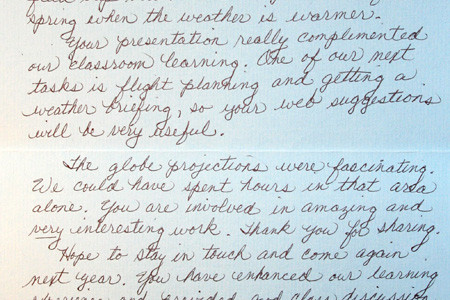 spring when the weather is warmer.
Your presentation really complimented
our classroom learning. One of our next
tasks is flight planning and getting a
weather briefing, so your web suggestions
will be very useful.
The globe projections were fascinating.
We could have spent hours in that area
alone. You are involved in amazing and
very interesting work. Thank you for sharing.
Hope to stay in touch and come again
next year. You have enhanced our learning
and class discussion